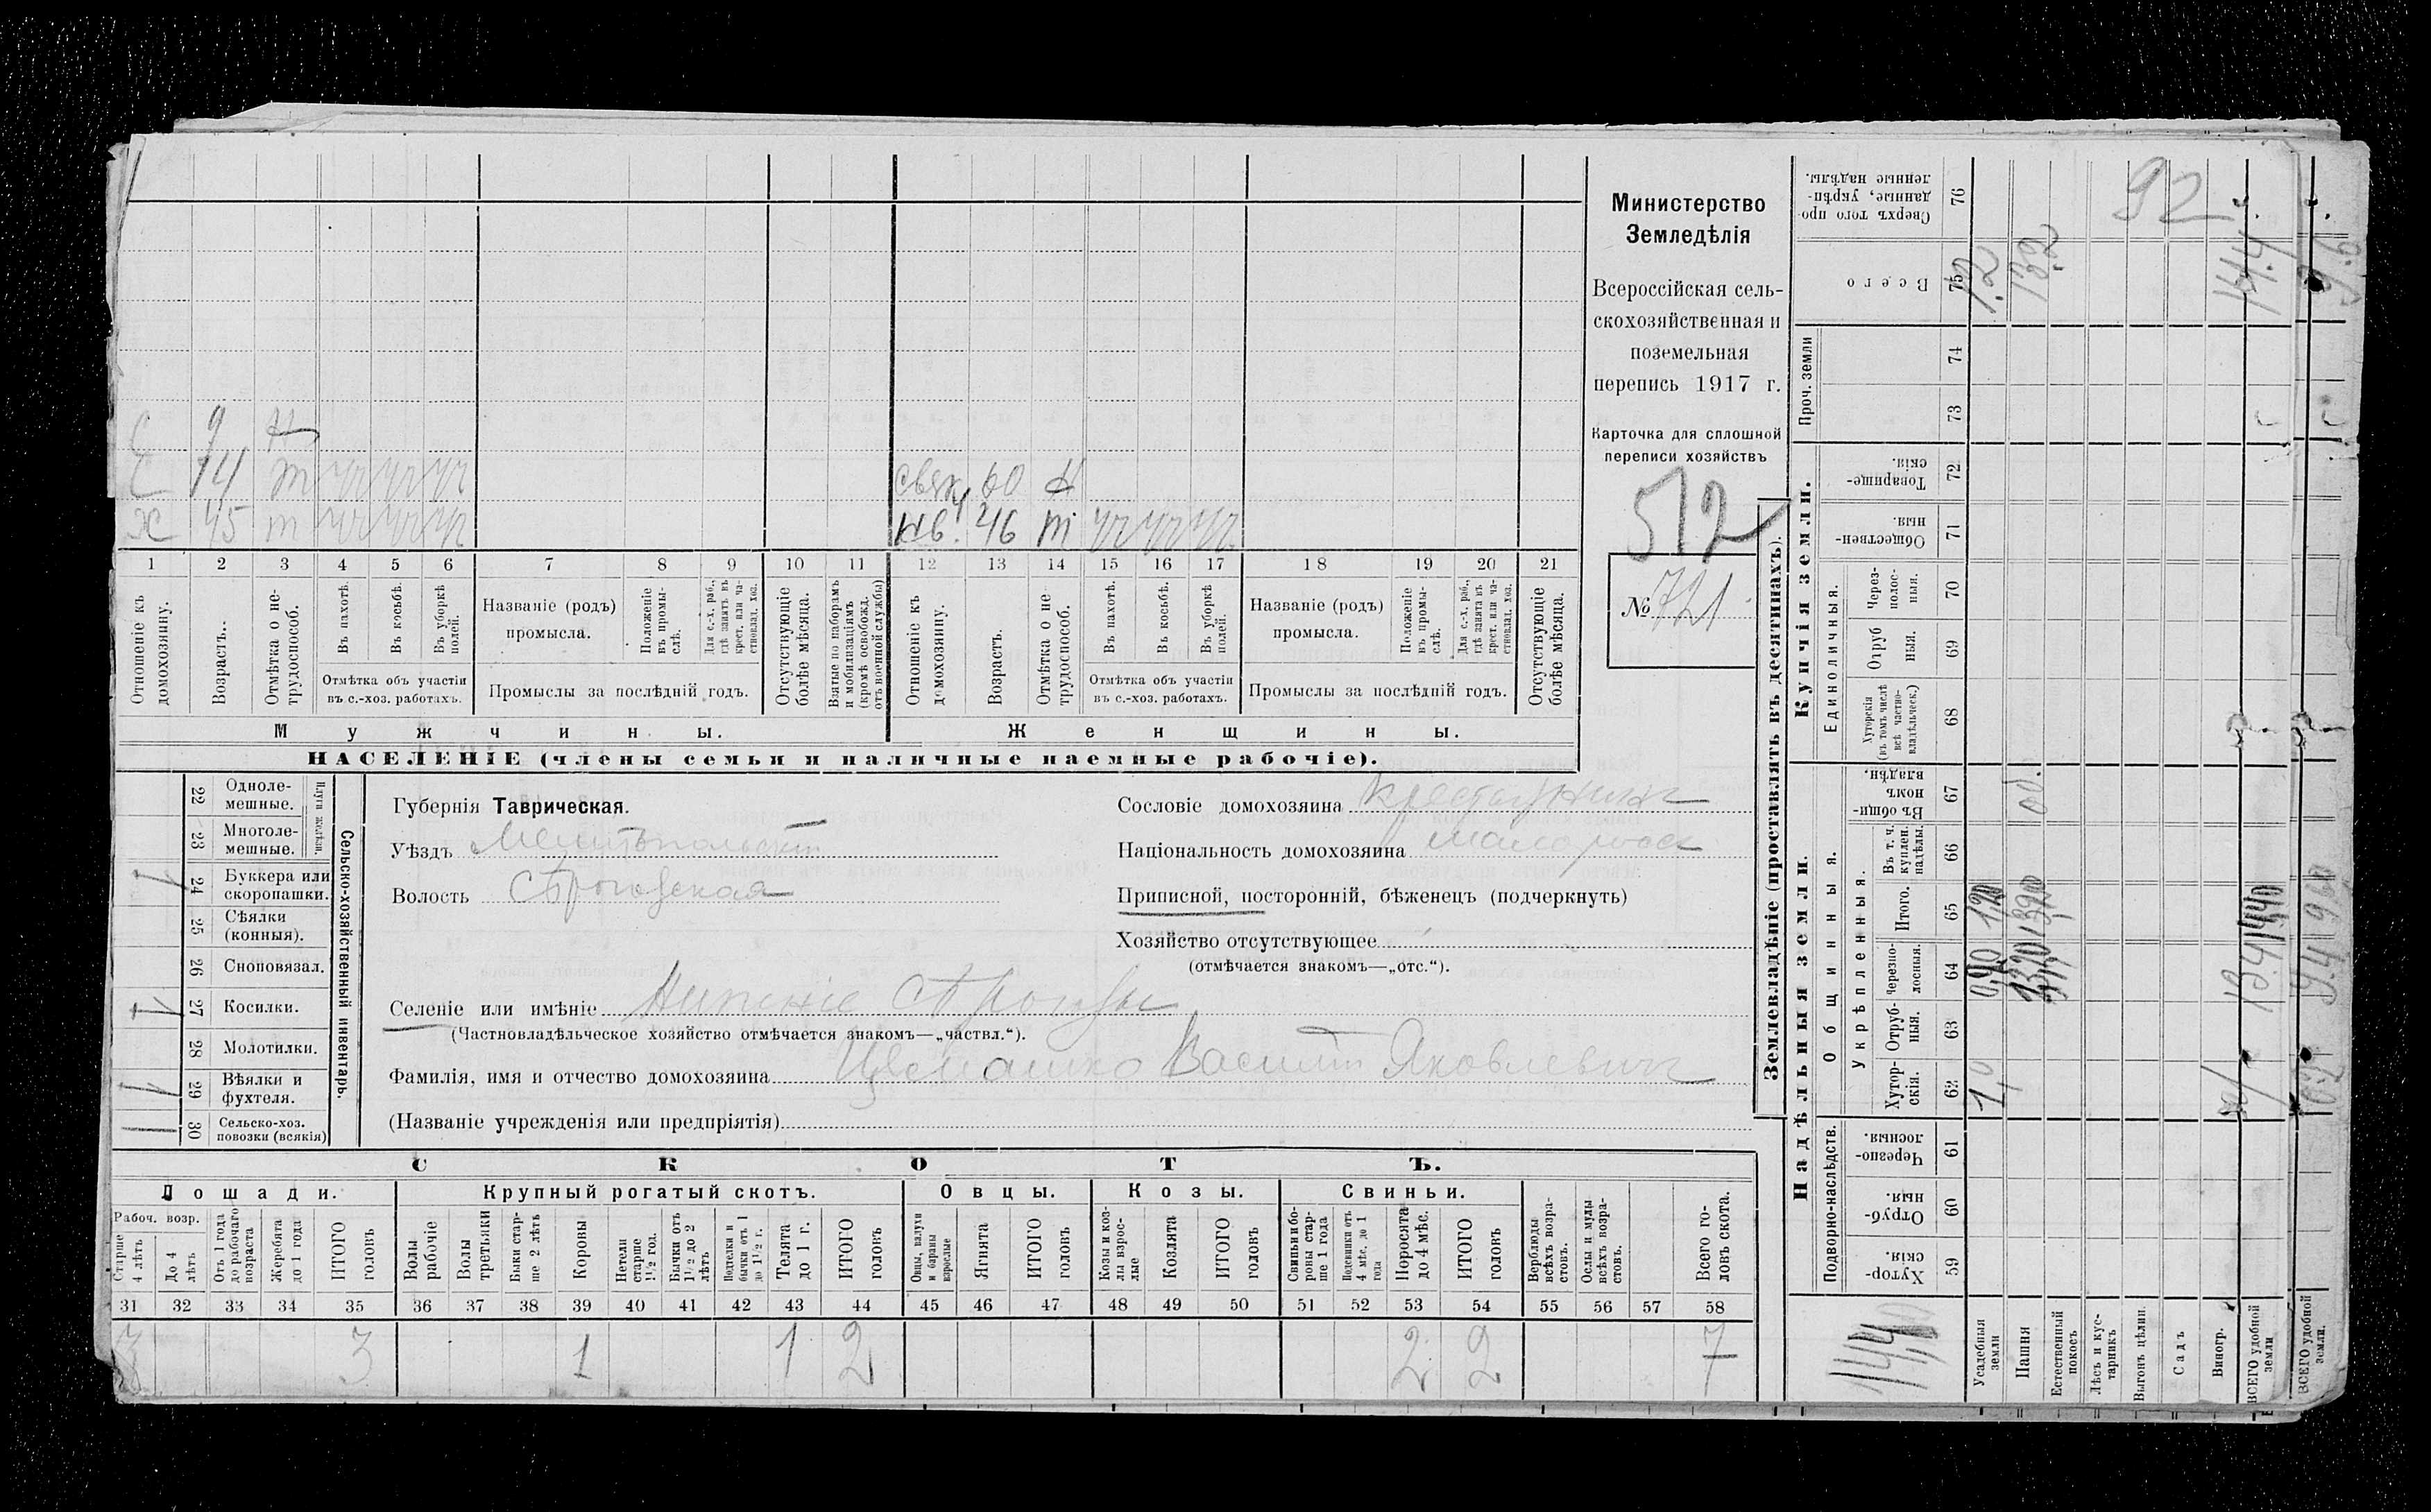 С 9 н
С 14 т уч уч уч
свяч 60 н
Х 45 т уч уч уч
кв. 46 т уч уч уч
1 2 3 4 5 6 7 8 9 10 11 12 13 14 15 16 17 18 19 20 21
Отношеніе къ домохозяину.
Возрастъ.
Отмѣтка о нетрудоспособ.
Въ пахотѣ.
Въ косьбѣ.
Въ уборкѣ полей.
Отмѣтка объ участіи въ с.-хоз. работахъ.
Названіе (родъ) промысла.
Положеніе въ промыслѣ.
Для с.-х. раб., гдѣ занятъ въ крест. или частновлад. хоз.
Промыслы за послѣдній годъ.
Отсутствующіе болѣе мѣсяца.
Взятые по наборамъ и мобилизаціямъ (кромѣ освобожд. отъ военной службы)
Отношеніе къ домохозяину.
Возрастъ.
Отмѣтка о нетрудоспособ.
Въ пахотѣ.
Въ косьбѣ.
Въ уборкѣ полей.
Отмѣтка объ участіи въ с.-хоз. работахъ.
Названіе (родъ) промысла.
Положеніе въ промыслѣ.
Для с.-х. раб., гдѣ занята въ крест. или частновлад. хоз.
Промыслы за послѣдній годъ.
Отсутствующіе болѣе мѣсяца.
Мужчины.
Женщины.
НАСЕЛЕНІЕ (члены семьи и наличные наемные рабочіе).
Министерство
Земледѣлія
Всероссійская сель-
скохозяйственная и
поземельная
перепись 1917 г.
Карточка для сплошной
переписи хозяйствъ
512
№ 721
Сельско-хозяйственный инвентарь.
Плуги желѣзн.
22 Однолемешные.
23 Многолемешные.
24 Буккера или скоропашки.
25 Сѣялки (конныя).
26 Сноповязал.
27 Косилки.
28 Молотилки.
29 Вѣялки и фухтеля.
30 Сельско-хоз. повозки (всякія)
Губернія Таврическая.
Уѣздъ Мелитопольскій
Волость Сѣрогозская
Сословіе домохозяина Крестьянинъ
Національность домохозяина Малороссъ
Приписной, посторонній, бѣженецъ (подчеркнуть)
Хозяйство отсутствующее
(отмѣчается знакомъ—„отс.“).
Селеніе или имѣніе Нижніе Сѣрогозы
(Частновладѣльческое хозяйство отмѣчается знакомъ—„частвл.“).
Фамилія, имя и отчество домохозяина Василій Яковлевичъ
(Названіе учрежденія или предпріятія)
СКОТЪ.
Лошади. Крупный рогатый скотъ. Овцы. Козы. Свиньи.
Рабоч. возр.
Старше 4 лѣтъ
До 4 лѣтъ
Отъ 1 года до рабочаго возраста
Жеребята до 1 года
ИТОГО головъ
Волы рабочіе
Волы третьяки
Быки старше 2 лѣтъ
Коровы
Нетели старше 1 1/2 год.
Бычки отъ 1 1/2 до 2 лѣтъ
Подтелки и бычки отъ 1 до 1 1/2 г.
Телята до 1 г.
ИТОГО головъ
Овцы, валухи и бараны взрослые
Ягнята
ИТОГО головъ
Козы и козлы взрослые
Козлята
ИТОГО головъ
Свиньи и боровы старше 1 года
Подсвинки отъ 4 мѣс. до 1 года
Поросята до 4 мѣс.
ИТОГО головъ
Верблюды всѣхъ возрастовъ.
Ослы и мулы всѣхъ возрастовъ.
Всего головъ скота.
31 32 33 34 35 36 37 38 39 40 41 42 43 44 45 46 47 48 49 50 51 52 53 54 55 56 57 58
3 3 1 1 2 2 2 7
Землевладѣніе (проставлять въ десятинахъ).
Надѣльныя земли.
Купчія земли.
Проч. земли
Подворно-наслѣдств.
Общинныя.
Укрѣпленныя.
Единоличныя.
Сверхъ того проданные, укрѣпленные надѣлы. 76
Всего 75
74
73
Товарищескія. 72
Общественныя. 71
Черезполосныя. 70
Отрубныя. 69
Хуторскія (въ томъ числѣ всѣ частновладѣльческ.) 68
Въ общинномъ владѣн. 67
Въ т. ч. куплен. надѣлы. 66
Итого. 65
Черезполосныя. 64
Отрубныя. 63
Хуторскія. 62
Черезполосныя. 61
Отрубныя. 60
Хуторскія. 59
Усадебныя земли
Пашня
Естественный покосъ
Лѣсъ и кустарникъ
Выгонъ цѣлин.
Садъ
Виногр.
ВСЕГО удобной земли
ВСЕГО удобной земли.
92
1.2
13.2
14.4
об.